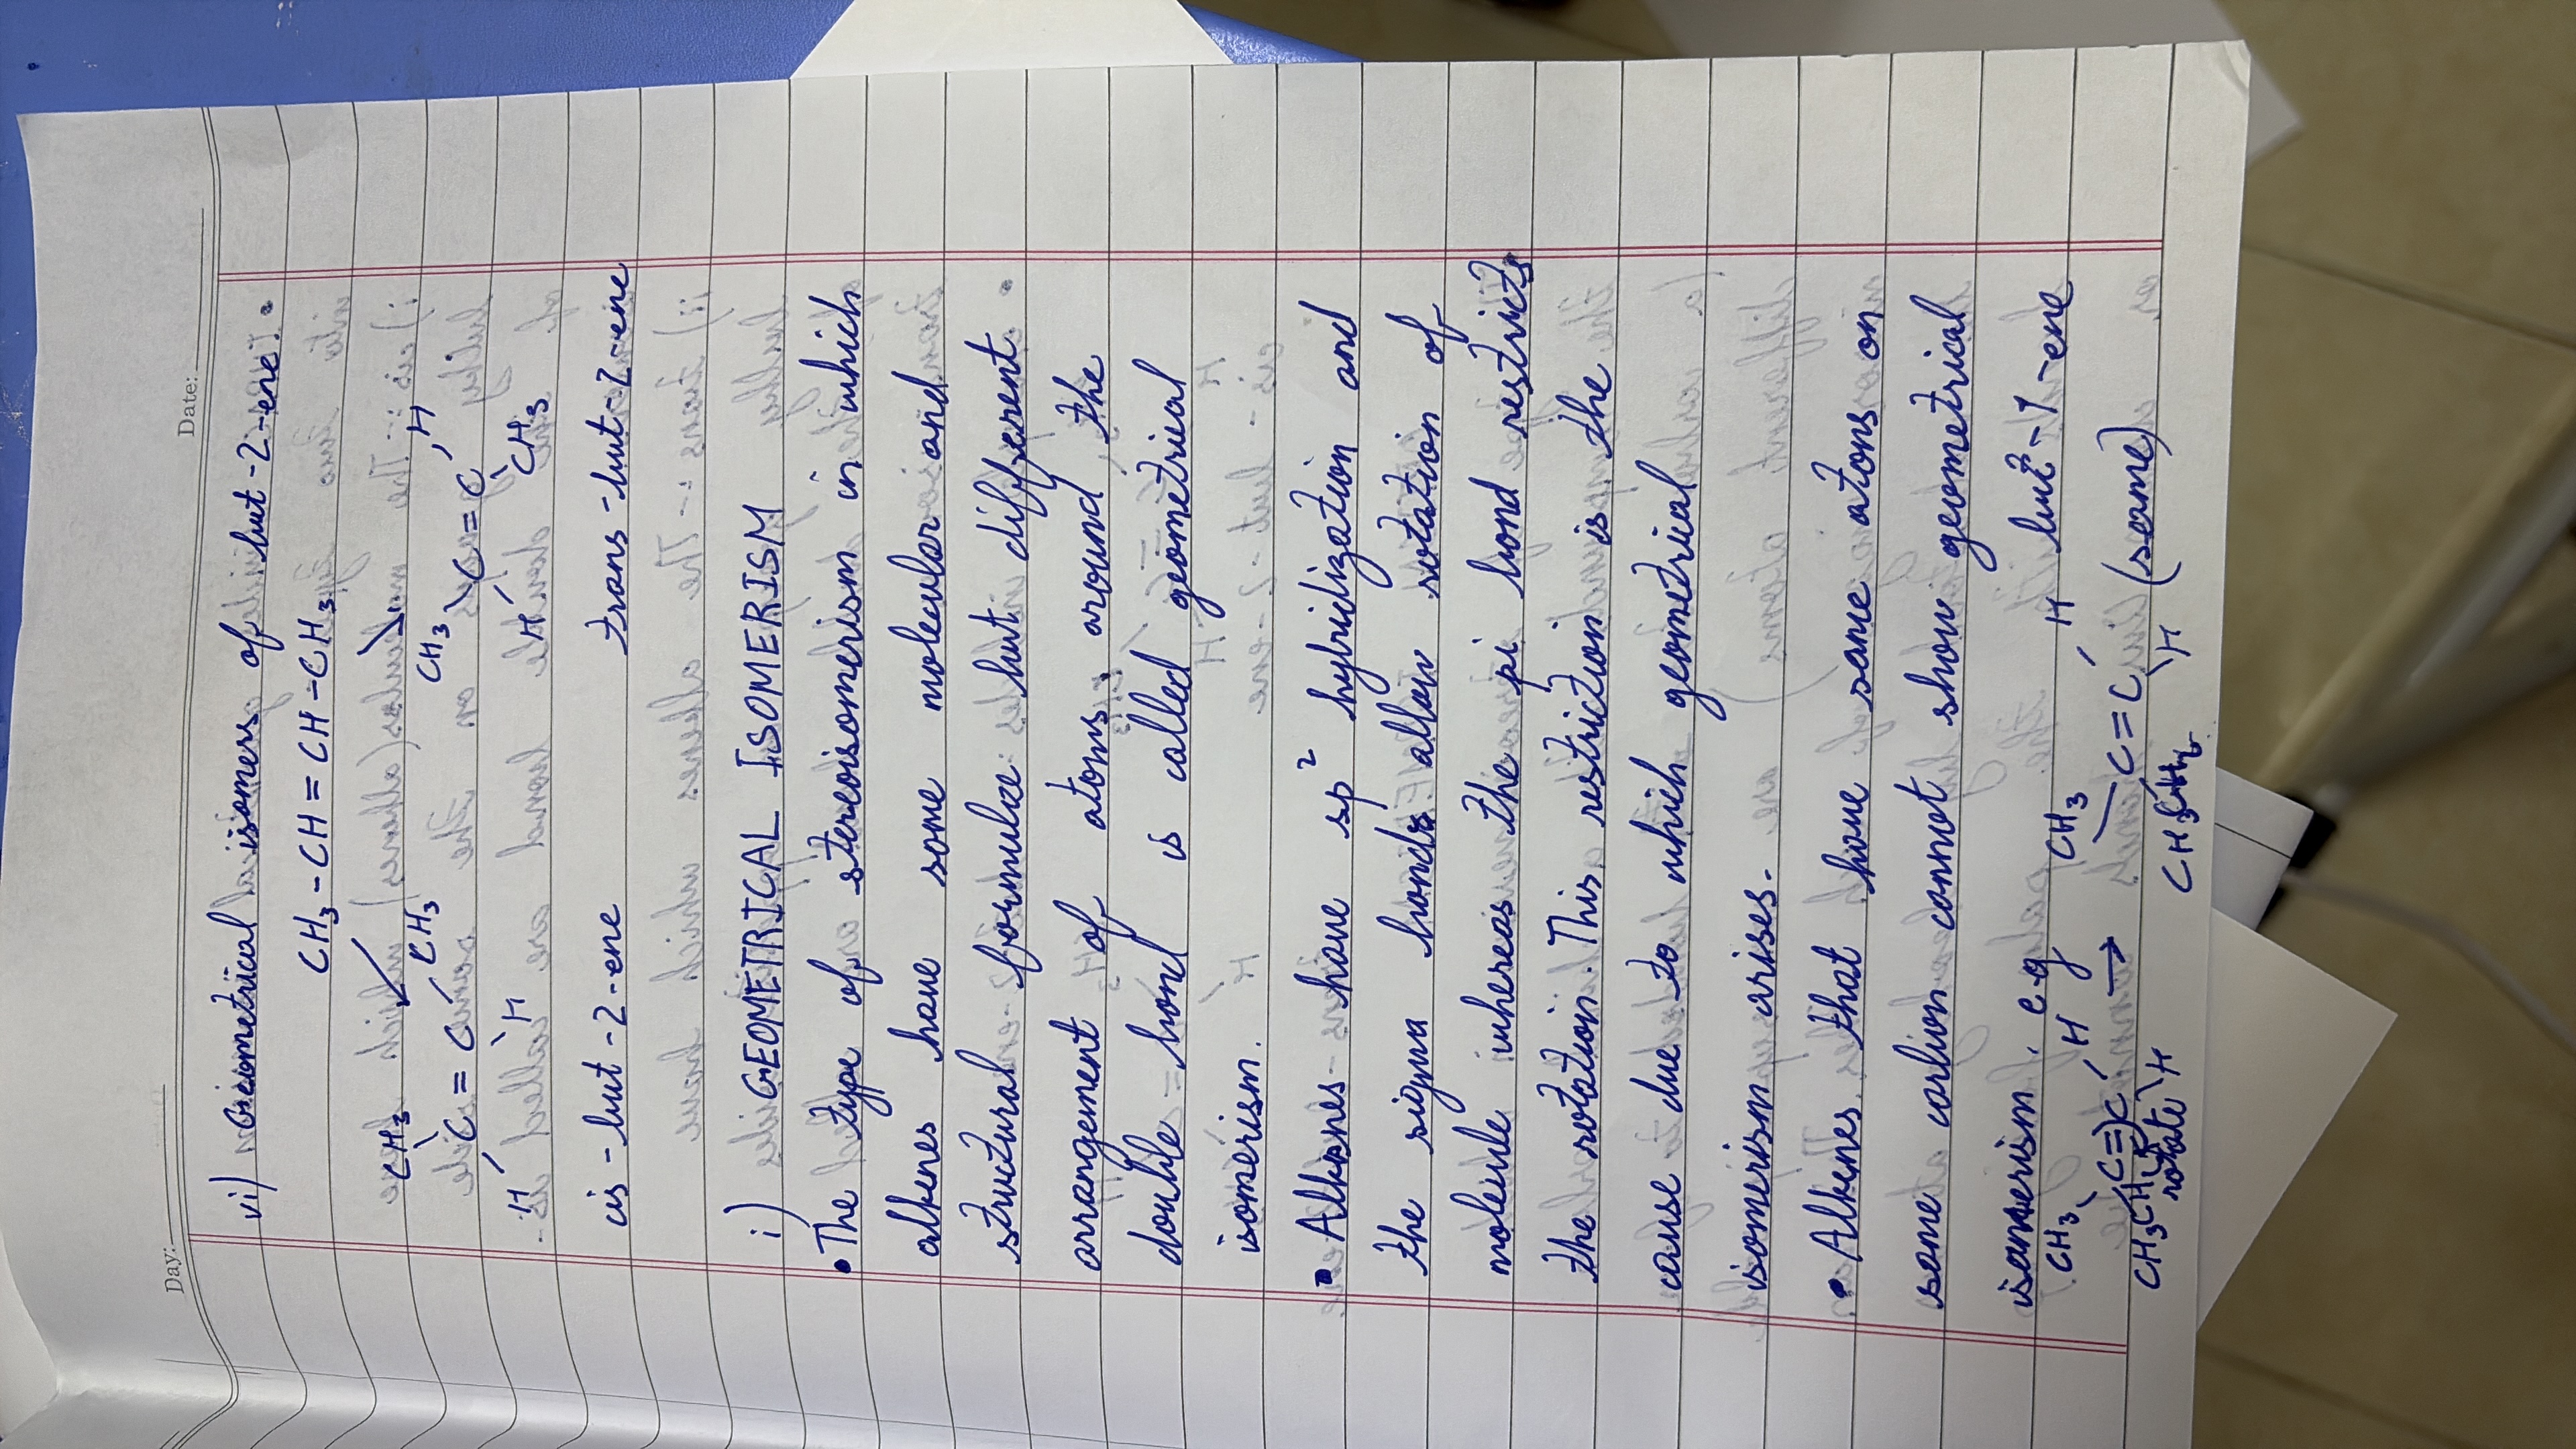 Day: Date:
vi) Geometrical isomers of but-2-ene.
CH3-CH=CH-CH3
CH3 CH3 CH3 H
C=C C=C
H H H CH3
cis-but-2-ene trans-but-2-ene
i) GEOMETRICAL ISOMERISM
• The type of stereoisomerism in which
alkenes have same molecular and
structural formulae but different
arrangement of atoms around the
double bond is called geometrical
isomerism.
• Alkenes have sp² hybridization and
the sigma bonds allow rotation of
molecule whereas the pi bond restricts
the rotation. This restriction is the
cause due to which geometrical
isomerism arises.
• Alkenes that have same atoms on
same carbon cannot show geometrical
isomerism. e.g but-1-ene
CH3 H CH3 H
C=C → C=C (same)
CH3CH2 H CH3CH2 H
rotate